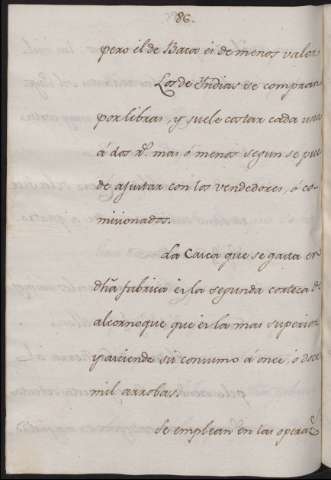 86.
pero èl de Baca es de menos valor
Los de Yndias se compran
por libras, y suele costar cada una
á dos r.ˢ mas ó menos segun se pue
de ajustar con los vendedores, ó co-
misionados.
La Casca que se gasta en
dha fabrica es la segunda corteza de
alcornoque que es la mas superior
y asciende su consumo á once, ó doce
mil arrobas.
Se emplean en las operac.ˢ